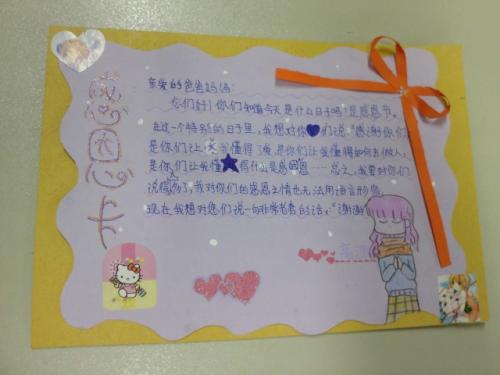 感恩心卡
亲爱的爸爸妈妈:
你们好!你们知道今天是什么日子吗?是感恩节。
在这一个特别的日子里,我想对你们说:"感谢你们,
是你们让我懂得了爱,是你们让我懂得如何去做人,
是你们让我懂得什么是感恩……总之,我要对你们
说
了,我对你们的感恩之情也无法用语言形
现在我想对您们说一句非常老套的话:"谢谢